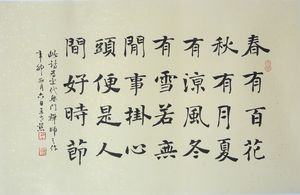 春有百花
秋有月夏
有涼風冬
有雪若無
閒事掛心
頭便是人
間好時節
此詩宋代無門禪師之作
辛卯月六日